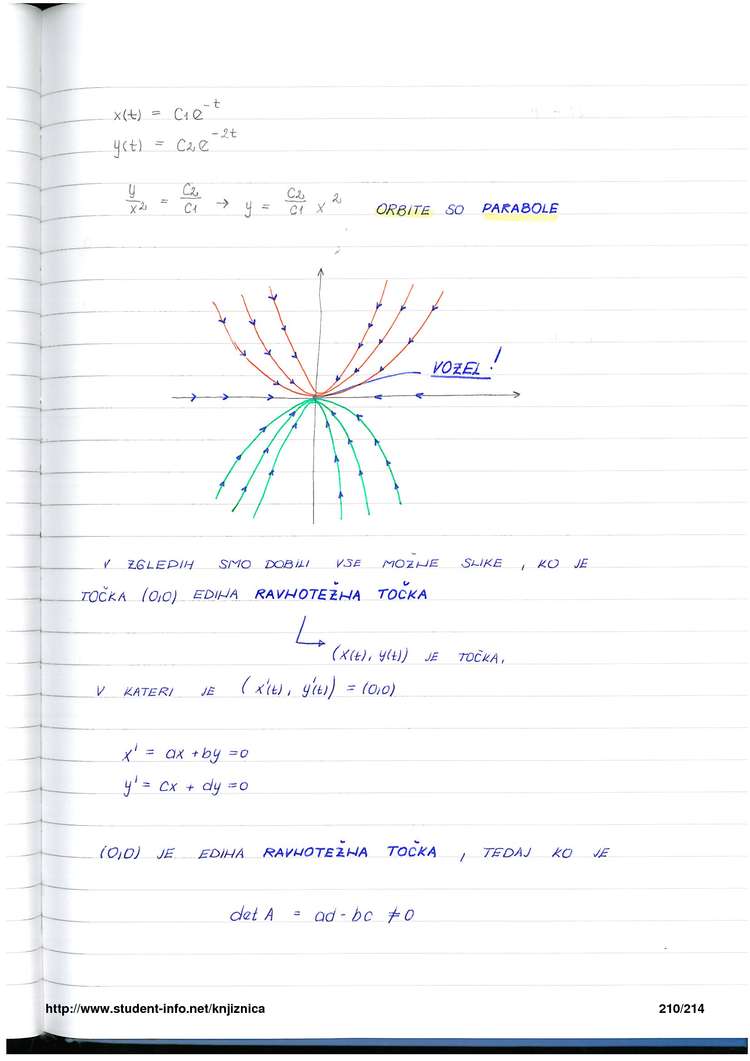 x(t) = C1e^-t
y(t) = C2e^-2t
y/x² = C2/C1 → y = C2/C1 x² ORBITE SO PARABOLE
VOZEL!
V ZGLEDIH SMO DOBILI VSE MOŽNE SLIKE, KO JE
TOČKA (0,0) EDINA RAVNOTEŽNA TOČKA
(x(t), y(t)) JE TOČKA,
V KATERI JE (x'(t), y'(t)) = (0,0)
x' = ax + by = 0
y' = cx + dy = 0
(0,0) JE EDINA RAVNOTEŽNA TOČKA, TEDAJ KO JE
det A = ad - bc ≠ 0
http://www.student-info.net/knjiznica 210/214